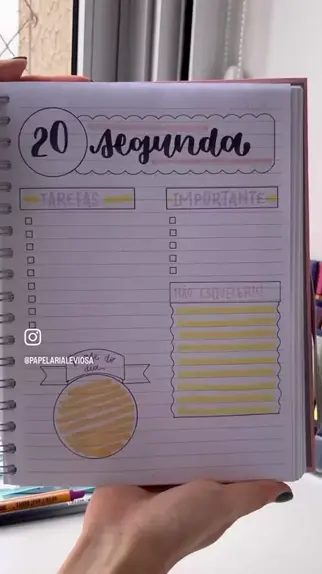 20 segunda
TAREFAS
IMPORTANTE
NÃO ESQUECER!
@PAPELARIALEVIOSA
do
dia